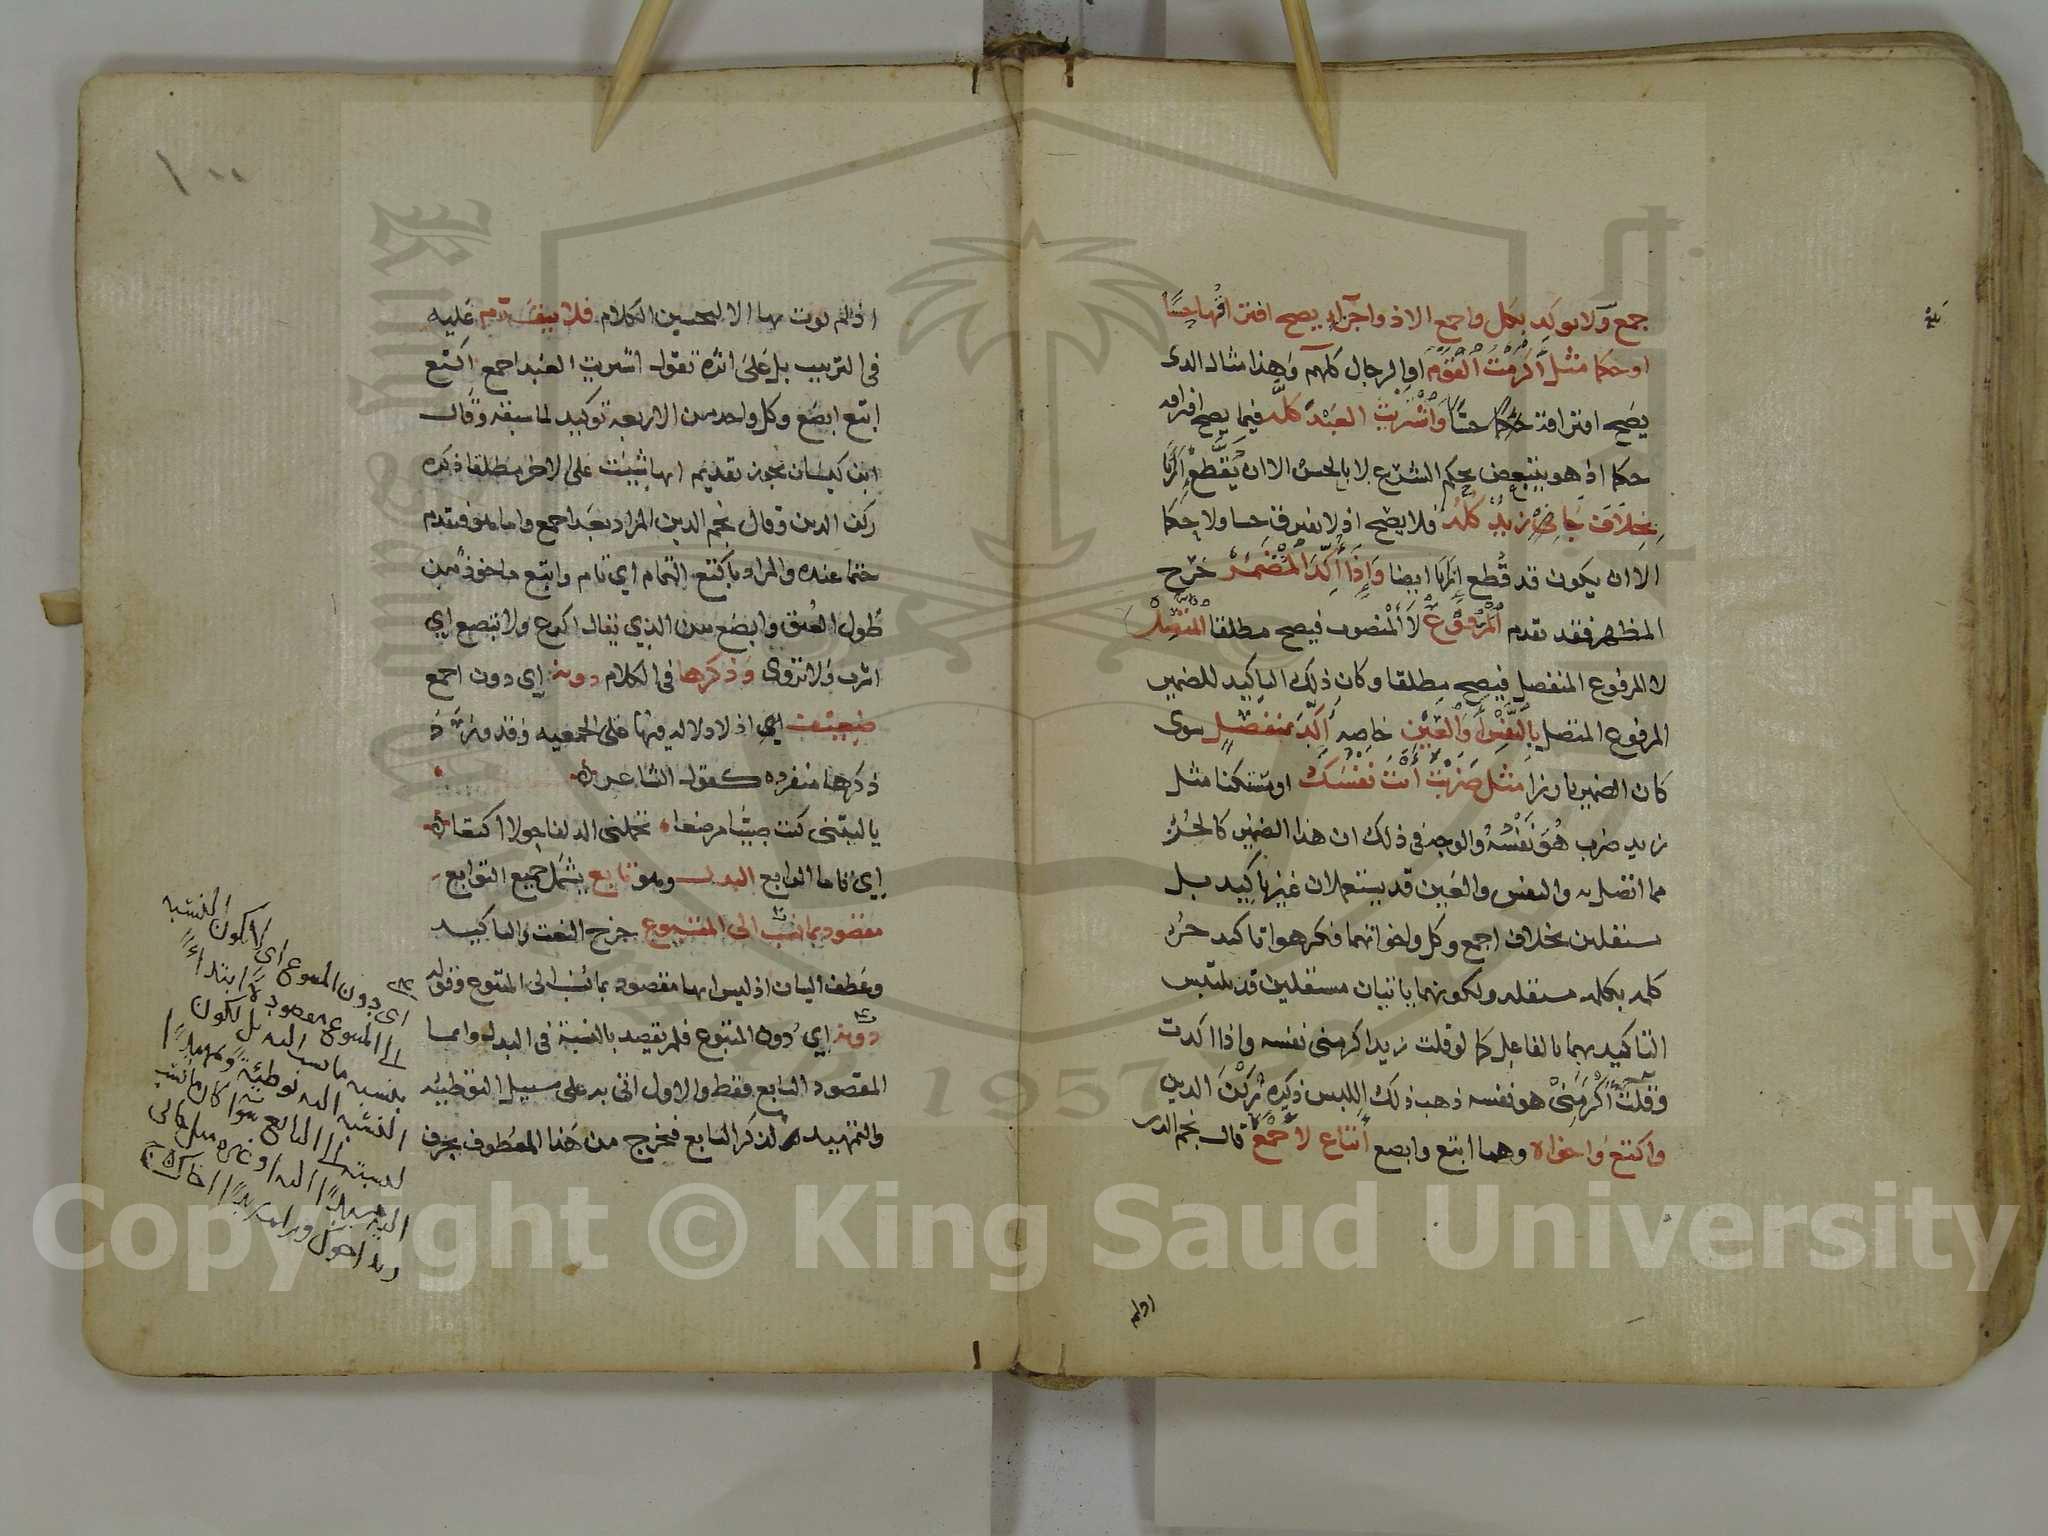 جمع ولا يوكد بكل واجمع الا ذو اجزاء يصح افتراقها حسا
او حكما مثل اكرمت القوم او الرجال كلهم وهذا مثال الذي
يصح افتراقه حسا واشتريت العبد كله فيما يصح افتراقه
حكما اذ هو يتبعض بحكم الشرع لا بالحس الا ان يقطع اربا
بخلاف جاني زيد كله فلا يصح اذ لا يفترق حسا ولا حكما
الا ان يكون قد قطع اربا ايضا واذا اكد المضمر خرج
المظهر فقد تقدم المرفوع لا المنصوب فيصح مطلقا المتصل
لا المرفوع المنفصل فيصح مطلقا وكان ذلك التاكيد للضمير
المرفوع المتصل بالنفس والعين خاصه اكد بمنفصل سوى
كان الضمير بارزا مثل ضربت انت نفسك او مستكنا مثل
زيد ضرب هو نفسه والوجه في ذلك ان هذا الضمير كالجزء
مما اتصل به والنفس والعين قد يستعملان غير تاكيد بل
مستقلين بخلاف اجمع وكل واخواتهما فكرهوا تاكيد جزء
كلمه بكلمه مستقله ولكونهما ياتيان مستقلين قد يلتبس
التاكيد بهما بالفاعل كما لو قلت زيد اكرمني نفسه واذا اكدت
وقلت اكرمني هو نفسه ذهب ذلك اللبس ذكره ركن الدين
واكتع واخواه وهما ابتع وابصع اتباع لاجمع قال نجم الدين
اذ لم
١٠٠
اذ لم يوت بها الا لتحسين الكلام فلا يتقدم عليه
في الترتيب بل على اثره تقول اشتريت العبد اجمع اكتع
ابتع ابصع وكل واحد من الاربعه توكيد لما سبقه وقال
ابن كيسان يجوز تقديم ايها شيت على الاخر مطلقا ذكره
ركن الدين وقال نجم الدين المراد بعد اجمع واما هو فيقدم
حتما عنده والمراد باكتع التمام اي تام وابتع ماخوذ من
طول العنق وابصع من الذي يقال اكرع ولا تبصع اي
اشرب ولا تروى وذكرها في الكلام دونه اي دون اجمع
ضعيف اي اذ لا دلاله فيها على الجمعيه وقد ورد
ذكرها منفرده كقول الشاعر
يا ليتني كنت صبيا مرضعا تحملني الذلفا حولا اكتعا
اي تاما الرابع البدل وهو تابع يشمل جميع التوابع
مقصود بما نسب الى المتبوع خرج النعت والتاكيد
وعطف البيان اذ ليس ايها مقصود بما نسب الى المتبوع وقوله
دونه اي دون المتبوع فلم يقصد بالنسبة في البدل وانما
المقصود التابع فقط والاول اتي به على سبيل التوطيه
والتمهيد لذكر التابع فيخرج من هذا المعطوف بحرف
اي دون المتبوع اي لا يكون النسبه
الى المتبوع مقصودة ابتداء
بنسبه ما نسب اليه بل لكون
النسبه اليه توطئة وتمهيدا
لنسبته الى التابع سوا كان ما نسب
اليه مسندا اليه او غيره مثل جاني
زيد اخوك وضربت زيدا اخاك